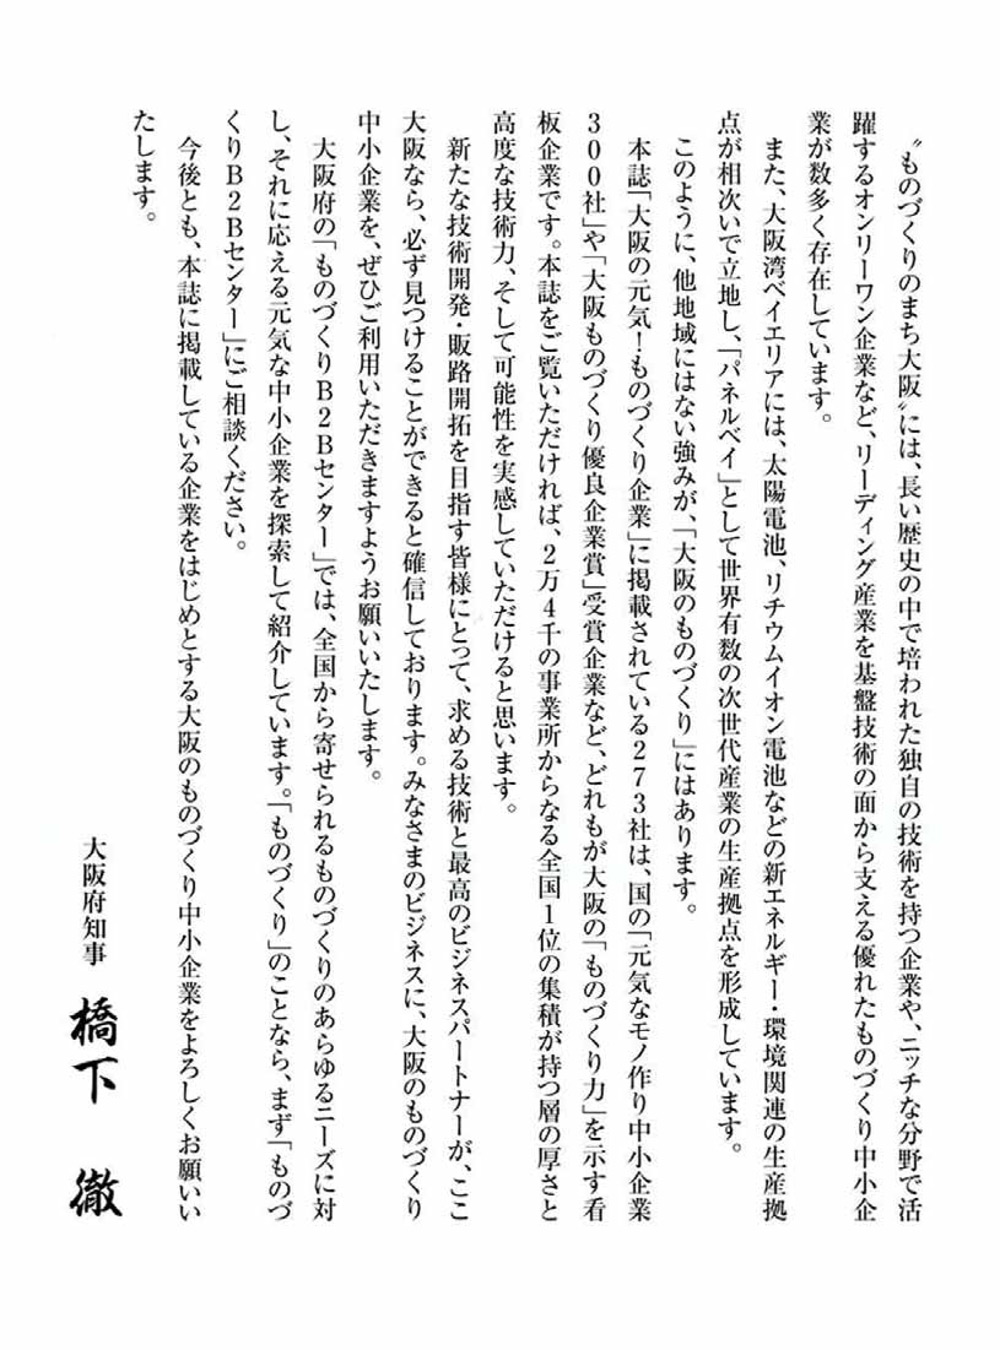 〝ものづくりのまち大阪〟には、長い歴史の中で培われた独自の技術を持つ企業や、ニッチな分野で活
躍するオンリーワン企業など、リーディング産業を基盤技術の面から支える優れたものづくり中小企
業が数多く存在しています。
また、大阪湾ベイエリアには、太陽電池、リチウムイオン電池などの新エネルギー・環境関連の生産拠
点が相次いで立地し、「パネルベイ」として世界有数の次世代産業の生産拠点を形成しています。
このように、他地域にはない強みが、「大阪のものづくり」にはあります。
本誌「大阪の元気！ものづくり企業」に掲載されている273社は、国の「元気なモノ作り中小企業
300社」や「大阪ものづくり優良企業賞」受賞企業など、どれもが大阪の「ものづくり力」を示す看
板企業です。本誌をご覧いただければ、2万4千の事業所からなる全国1位の集積が持つ層の厚さと
高度な技術力、そして可能性を実感していただけると思います。
新たな技術開発・販路開拓を目指す皆様にとって、求める技術と最高のビジネスパートナーが、ここ
大阪なら、必ず見つけることができると確信しております。みなさまのビジネスに、大阪のものづくり
中小企業を、ぜひご利用いただきますようお願いいたします。
大阪府の「ものづくりB2Bセンター」では、全国から寄せられるものづくりのあらゆるニーズに対
し、それに応える元気な中小企業を探索して紹介しています。「ものづくり」のことなら、まず「ものづ
くりB2Bセンター」にご相談ください。
今後とも、本誌に掲載している企業をはじめとする大阪のものづくり中小企業をよろしくお願いい
たします。
大阪府知事 橋下 徹